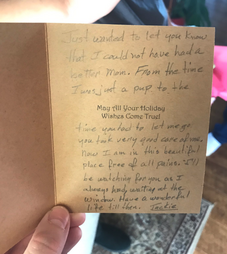 Just wanted to let you know
that I could not have had a
better mom. From the time
I was just a pup to the
May All Your Holiday
Wishes Come True!
time you had to let me go
you took very good care of me.
Now I am in this beautiful
place free of all pains. I'll
be watching for you as I
always had, waiting at the
window. Have a wonderful
life till then.